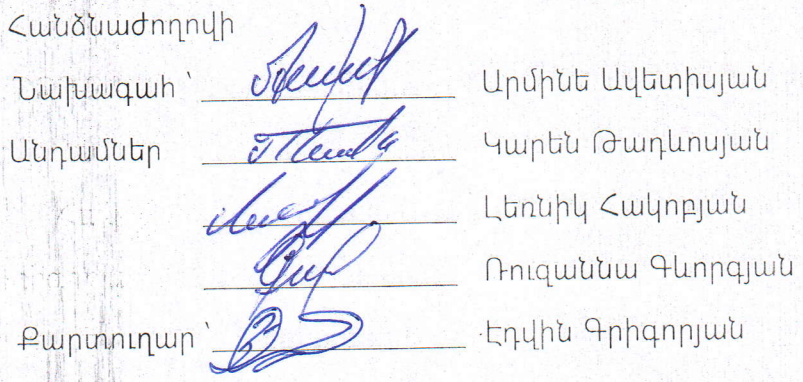 Հանձնաժողովի
Նախագահ ՝ Արմինե Ավետիսյան
Անդամներ Կարեն Թադևոսյան
Լեռնիկ Հակոբյան
Ռուզաննա Գևորգյան
Քարտուղար ՝ Էդվին Գրիգորյան